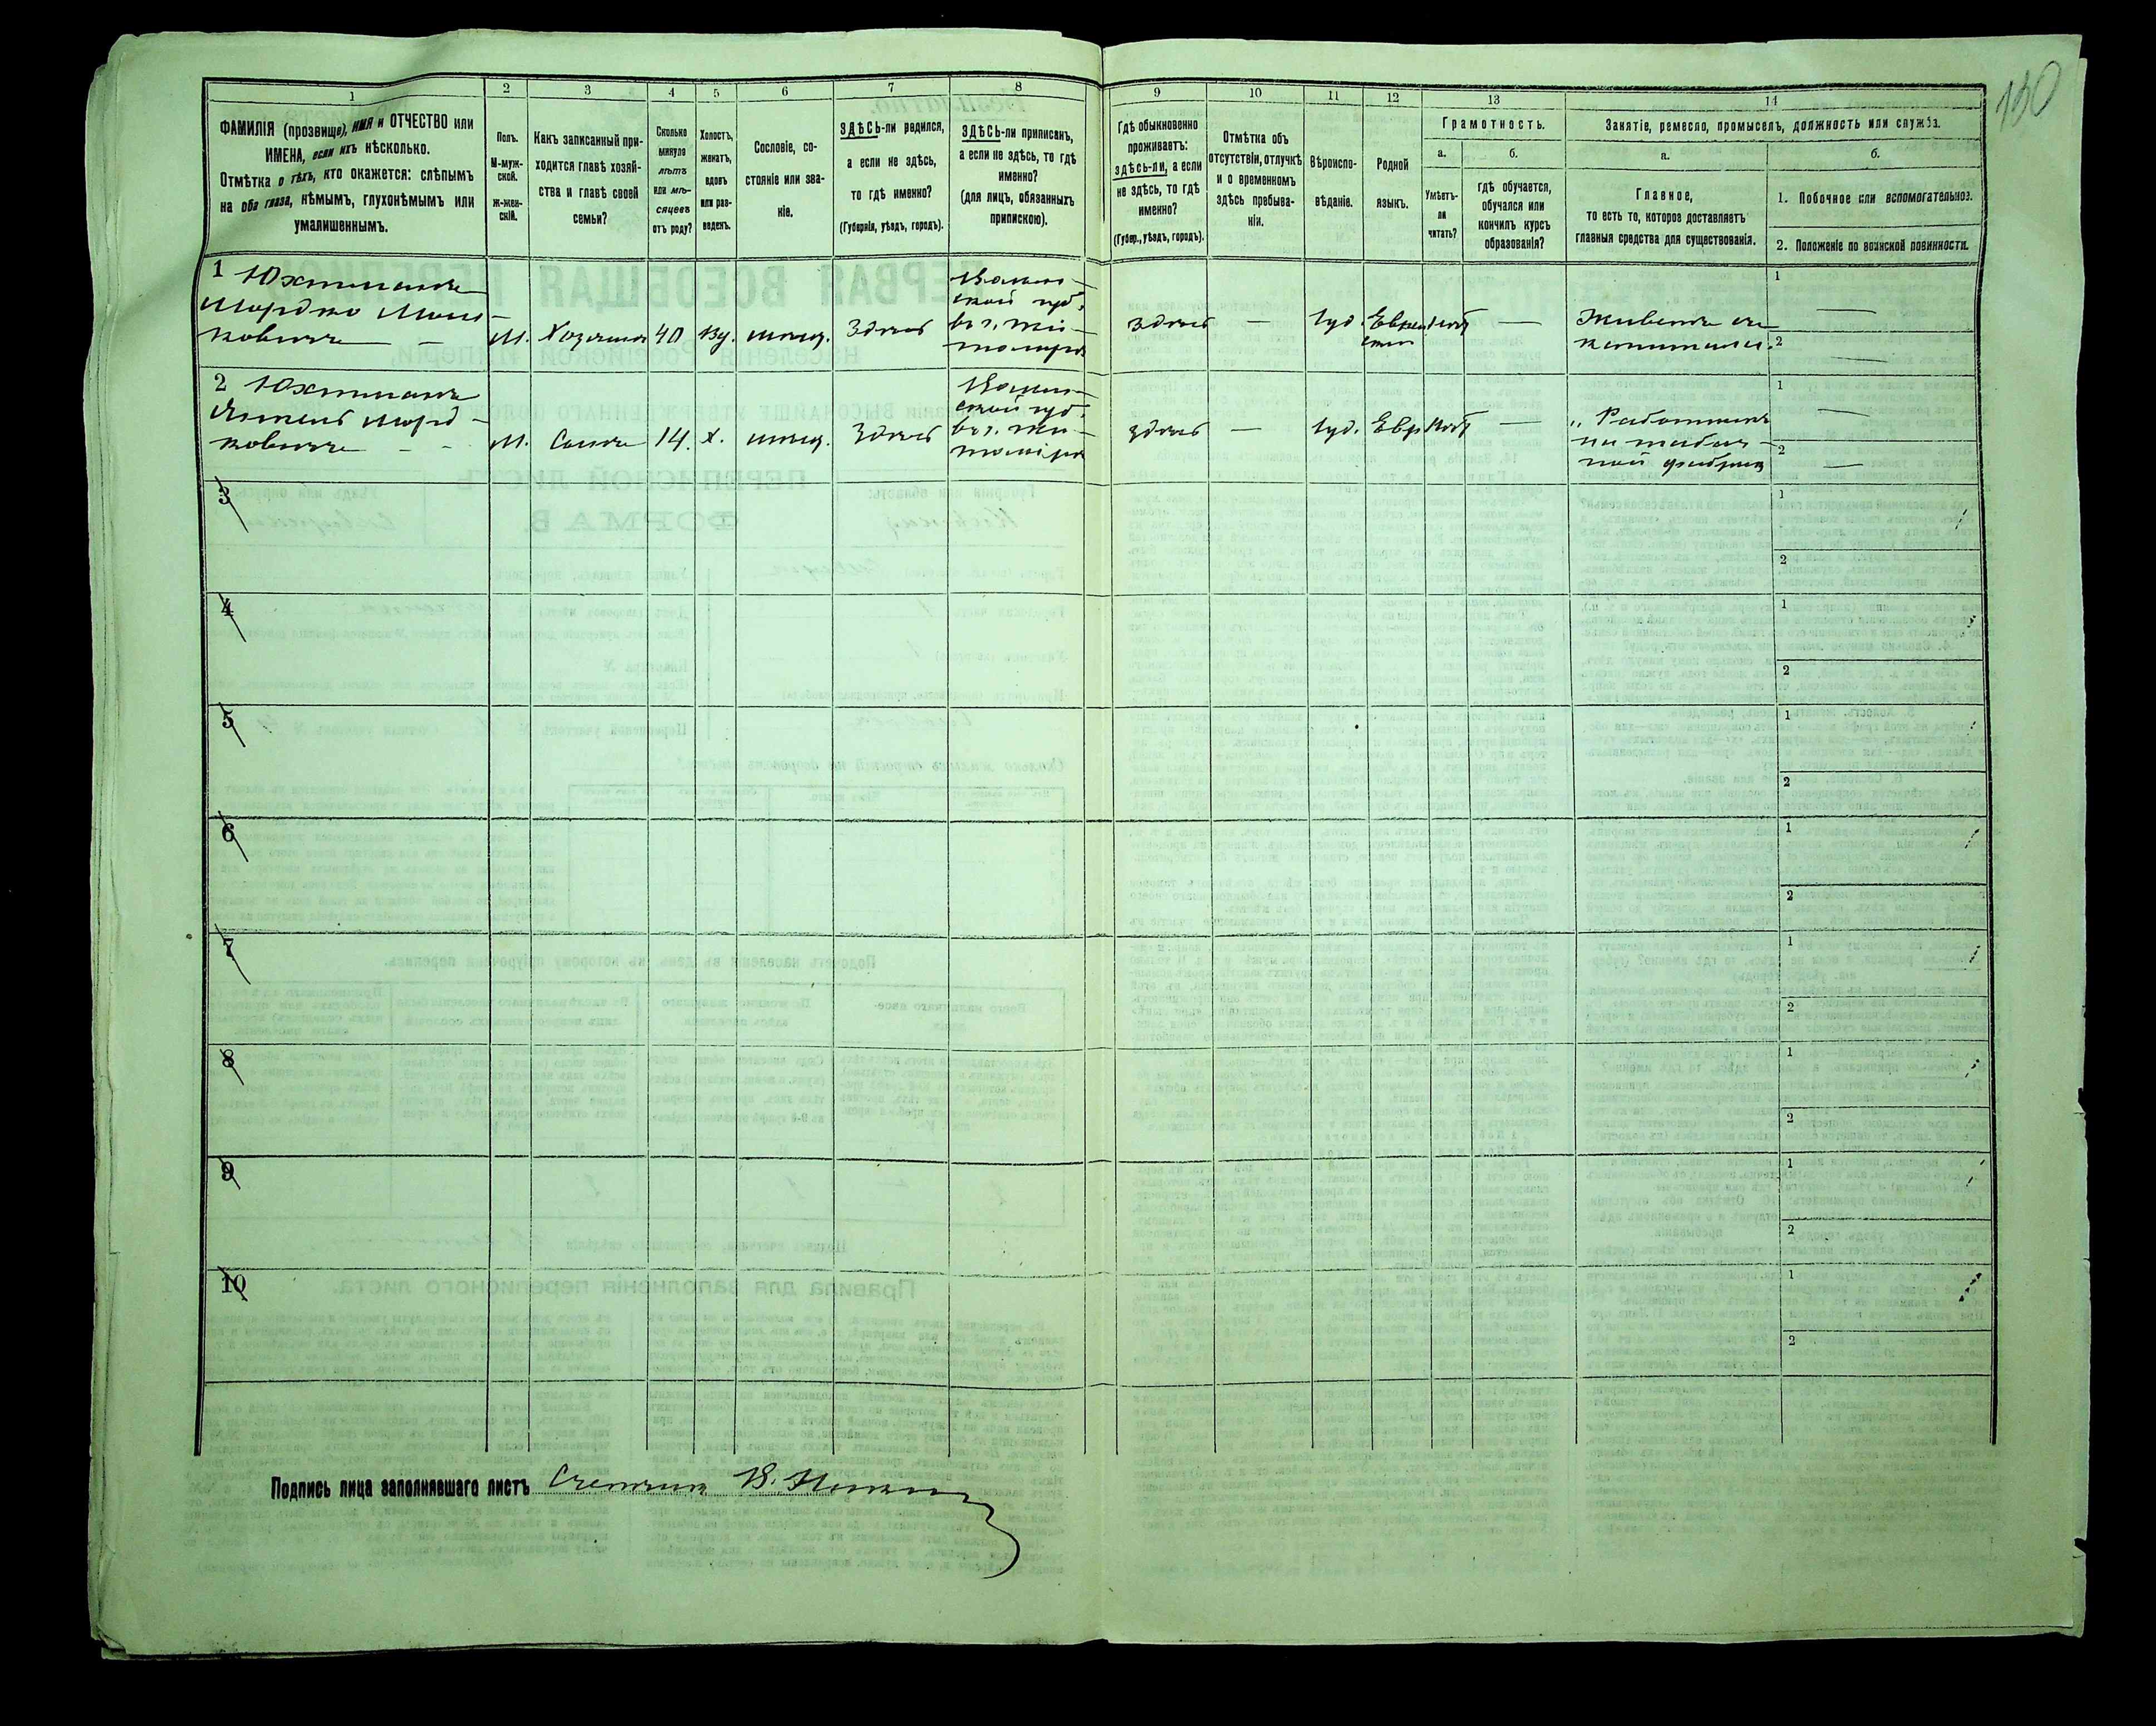 130
1 2 3 4 5 6 7 8 9 10 11 12 13 14
ФАМИЛІЯ (прозвище), ИМЯ и ОТЧЕСТВО или
ИМЕНА, если ихъ нѣсколько.
Отмѣтка о тѣхъ, кто окажется: слѣпымъ
на оба глаза, нѣмымъ, глухонѣмымъ или
умалишеннымъ.
Полъ.
М-муж-
ской.
ж-жен-
скій.
Какъ записанный при-
ходится главѣ хозяй-
ства и главѣ своей
семьи?
Сколько
минуло
лѣтъ
или мѣ-
сяцевъ
отъ роду?
Холостъ,
женатъ,
вдовъ
или раз-
веденъ.
Сословіе, со-
стояніе или зва-
ніе.
ЗДѢСЬ-ли родился,
а если не здѣсь,
то гдѣ именно?
(Губернія, уѣздъ, городъ).
ЗДѢСЬ-ли приписанъ,
а если не здѣсь, то гдѣ
именно?
(для лицъ, обязанныхъ
припискою).
Гдѣ обыкновенно
проживаетъ:
здѣсь-ли, а если
не здѣсь, то гдѣ
именно?
(Губер., уѣздъ, городъ).
Отмѣтка объ
отсутствіи, отлучкѣ
и о временномъ
здѣсь пребыва-
ніи.
Вѣроиспо-
вѣданіе.
Родной
языкъ.
Грамотность.
а.
Умѣетъ-
ли
читать?
б.
гдѣ обучается,
обучался или
кончилъ курсъ
образованія?
Занятіе, ремесло, промыселъ, должность или служба.
а.
Главное,
то есть то, которое доставляетъ
главныя средства для существованія.
б.
1. Побочное или вспомогательное.
2. Положеніе по воинской повинности.
1 Юхтманъ
Мордко Мош-
ковичъ — М. Хозяинъ 40 Вд. мѣщ. Здѣсь
Волын-
ской губ.
въ г. Жи-
томирѣ
здѣсь — Іуд. Еврей-
скій
Нѣтъ — Живетъ съ
капитала.
1 —
2 —
2 Юхтманъ
Морд-
ковичъ - - М. Сынъ 14. Х. мѣщ. Здѣсь
Волын-
ской губ.
въ г. Жи-
томирѣ
здѣсь — Іуд. Евр. Нѣтъ — „ Работникъ
на табач-
ной фабрикѣ
1 —
2 —
3 1
2
4 1
2
5 1
2
6 1
2
7 1
2
8 1
2
9 1
2
10 1
2
Подпись лица заполнявшаго листъ Счетчикъ В.